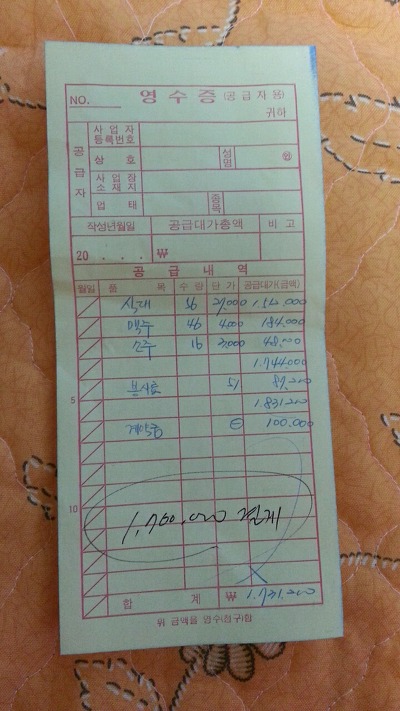 NO. 영수증 (공급자용)
귀하
공급자
사업자등록번호
상호 성명 ㊞
사업장소재지
업태 종목
작성년월일 공급대가총액 비고
20 . . . ₩
공급내역
월일 품목 수량 단가 공급대가(금액)
식대 56 27,000 1.512.000
맥주 46 4,000 184.000
소주 16 3,000 48.000
1.744.000
봉사료 5% 87,200
5 1.831.200
계약금 ⊖ 100.000
10
1.700.000 결제
합계 ₩ 1.731.200
위 금액을 영수(청구)함